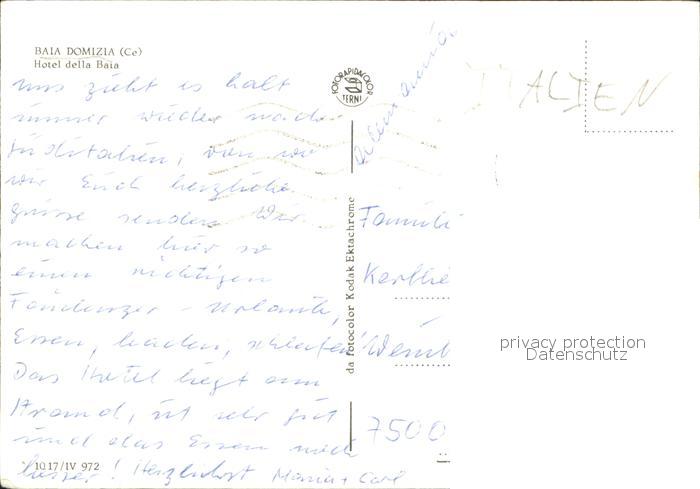 BAIA DOMIZIA (Ce)
Hotel della Baia
uns zieht es halt
immer wieder nach
Süditalien, von wo
wir Euch herzliche
grüsse senden. Wir
machen hier so
einen richtigen
Faulenzer-Urlaub,
Essen, baden, schlafen!
Das Hotel liegt am
Strand, ist sehr gut
und das Essen noch
besser! Herzlichst Maria + Carl
10 17/IV 972
FOTORAPIDACOLOR
TERNI
da fotocolor Kodak Ektachrome
Alemania
ITALIEN
Famili
7500
privacy protection
Datenschutz